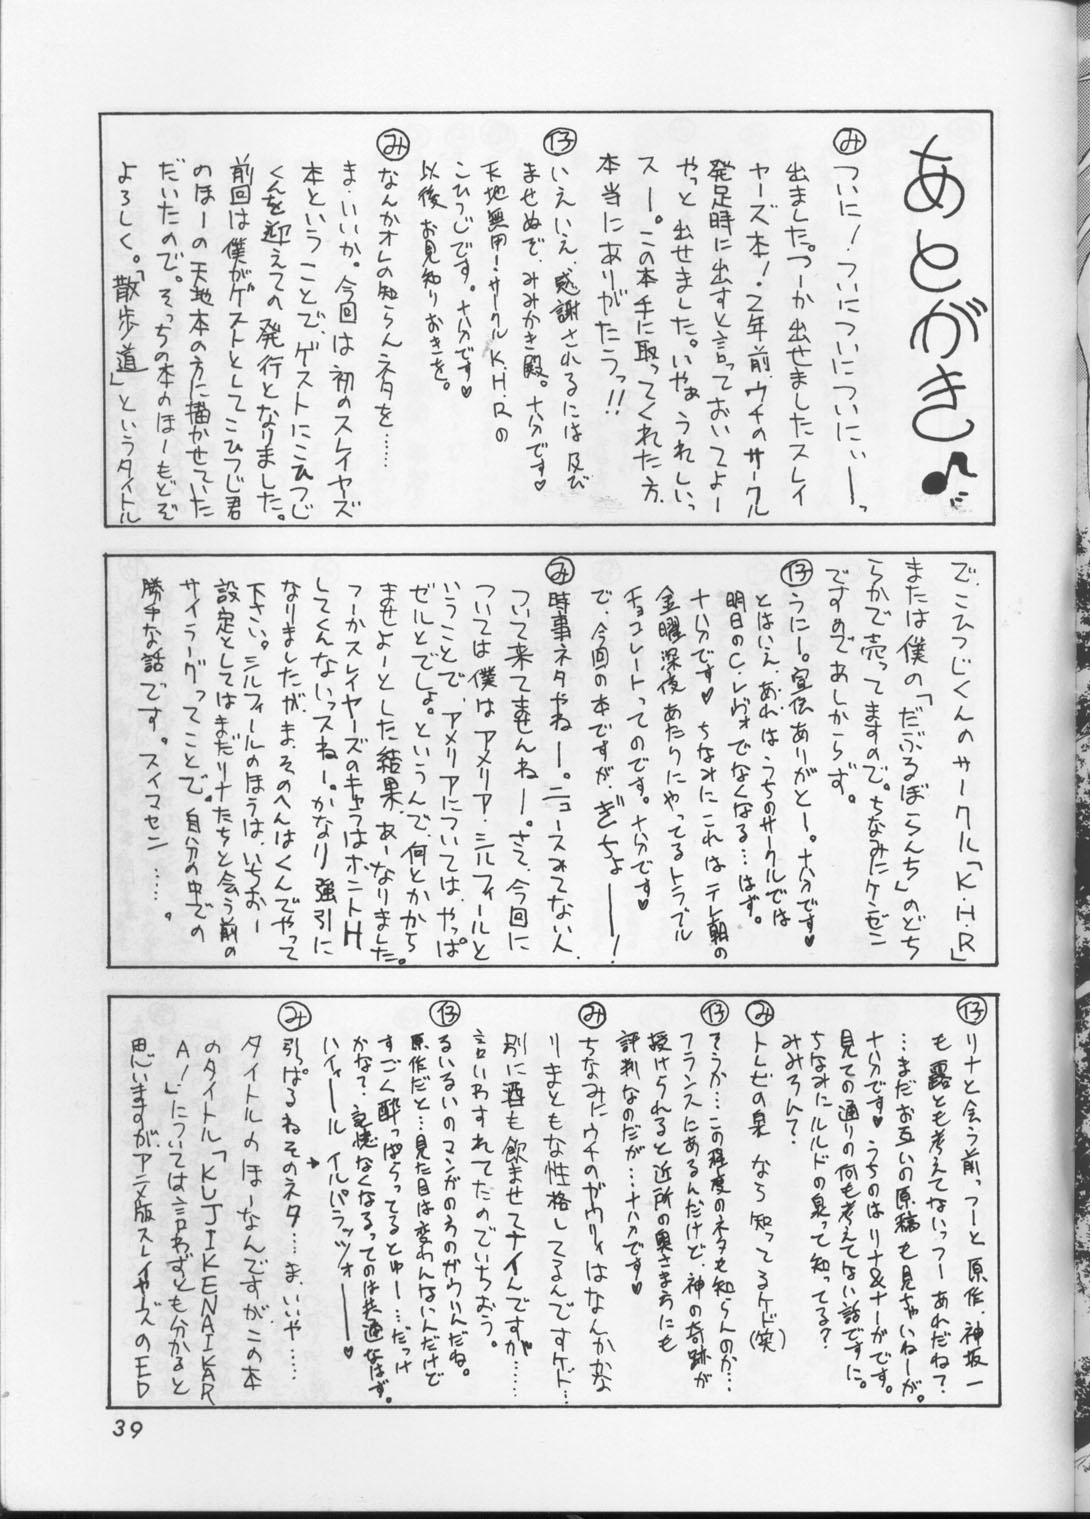 あとがき♪
み ついに！ついについについにぃーーっ
出ました。つーか出せましたスレイ
ヤーズ本！2年前、ウチのサークル
発足時に出すと言っておいてよー
やっと出せました。いやぁうれしいっ
スー。この本手に取ってくれた方、
本当にありがたうっ!!
仔 いえいえ、感謝されるには及び
ませぬで、みみかき殿。十分です♥
天地無用！サークルK.H.Rの
こひつじです。十分です♥
以後お見知りおきを。
み なんかオレの知らんネタを……
ま・いいか。今回は初のスレイヤーズ
本ということで、ゲストにこひつじ
くんを迎えての発行となりました。
前回は僕がゲストとしてこひつじ君
のほーの天地本の方に描かせていた
だいたので。そっちの本のほーもどぞ
よろしく。「散歩道」というタイトル
で、こひつじくんのサークル「K.H.R」
または僕の「だぶるぼらんち」のどち
らかで売ってますので。ちなみにケンゼン
ですのであしからず。
仔 うにー。宣伝ありがとー。十分です♥
とはいえ、あれは、うちのサークルでは
明日のC.レヴォでなくなる…はず。
十分です♥ ちなみにこれはテレ朝の
金曜深夜あたりにやってるトラブル
チョコレートってのです。十分です♥
で、今回の本ですが、ぎちょーーー！
み 時事ネタやねー。ニュースみてない人、
ついて来てませんねー。さて、今回に
ついては僕は、アメリア・シルフィールと
いうことで、アメリアについては、やっぱ
ゼルとでしょ。というんで、何とかから
ませよーとした結果、あーなりました。
つーかスレイヤーズのキャラはホントH
してくんないっスねー。かなり強引に
なりましたが、ま、そのへんはくんでやって
下さい。シルフィールのほうは、いちおー
設定としてはまだリナたちと会う前の
サイラーグってことで。自分の中での
勝手な話です。スイマセン……。
仔 リナと会う前っつーと原作、神坂一
も露とも考えてないっつーあれだね？
…まだお互いの原稿も見ちゃいねーが。
十分です♥ うちのはリナ&ナーがです。
見ての通りの何も考えてない話ですに。
ちなみにルルドの泉って知ってる？
みみろんて？
み トレビの泉なら知ってるケド（笑）
仔 そうか…この程度のネタも知らんのか…
フランスにあるんだけど、神の奇跡が
授けられると近所の奥さま方にも
評判なのだが…十分です♥
み ちなみにウチのガウリィはなんかかな
りまともな性格してるんですケド…
別に酒も飲ませてナイんですが……
言いわすれてたのでいちおう。
仔 るいるいのマンガのようのガウリんだね。
原作だと…見た目は変わんないんだけど
すごく酔っぱらってるとゆー…だっけ
かな？、記憶なくなるってのは共通なはず。
ハイィール イルパラッツォーーー♥
み 引っぱるねそのネタ……ま、いいや……
タイトルのほーなんですが、この本
のタイトル「KUJIKENAIKAR
A！」については言わずとも分かると
思いますが、アニメ版スレイヤーズのED
39